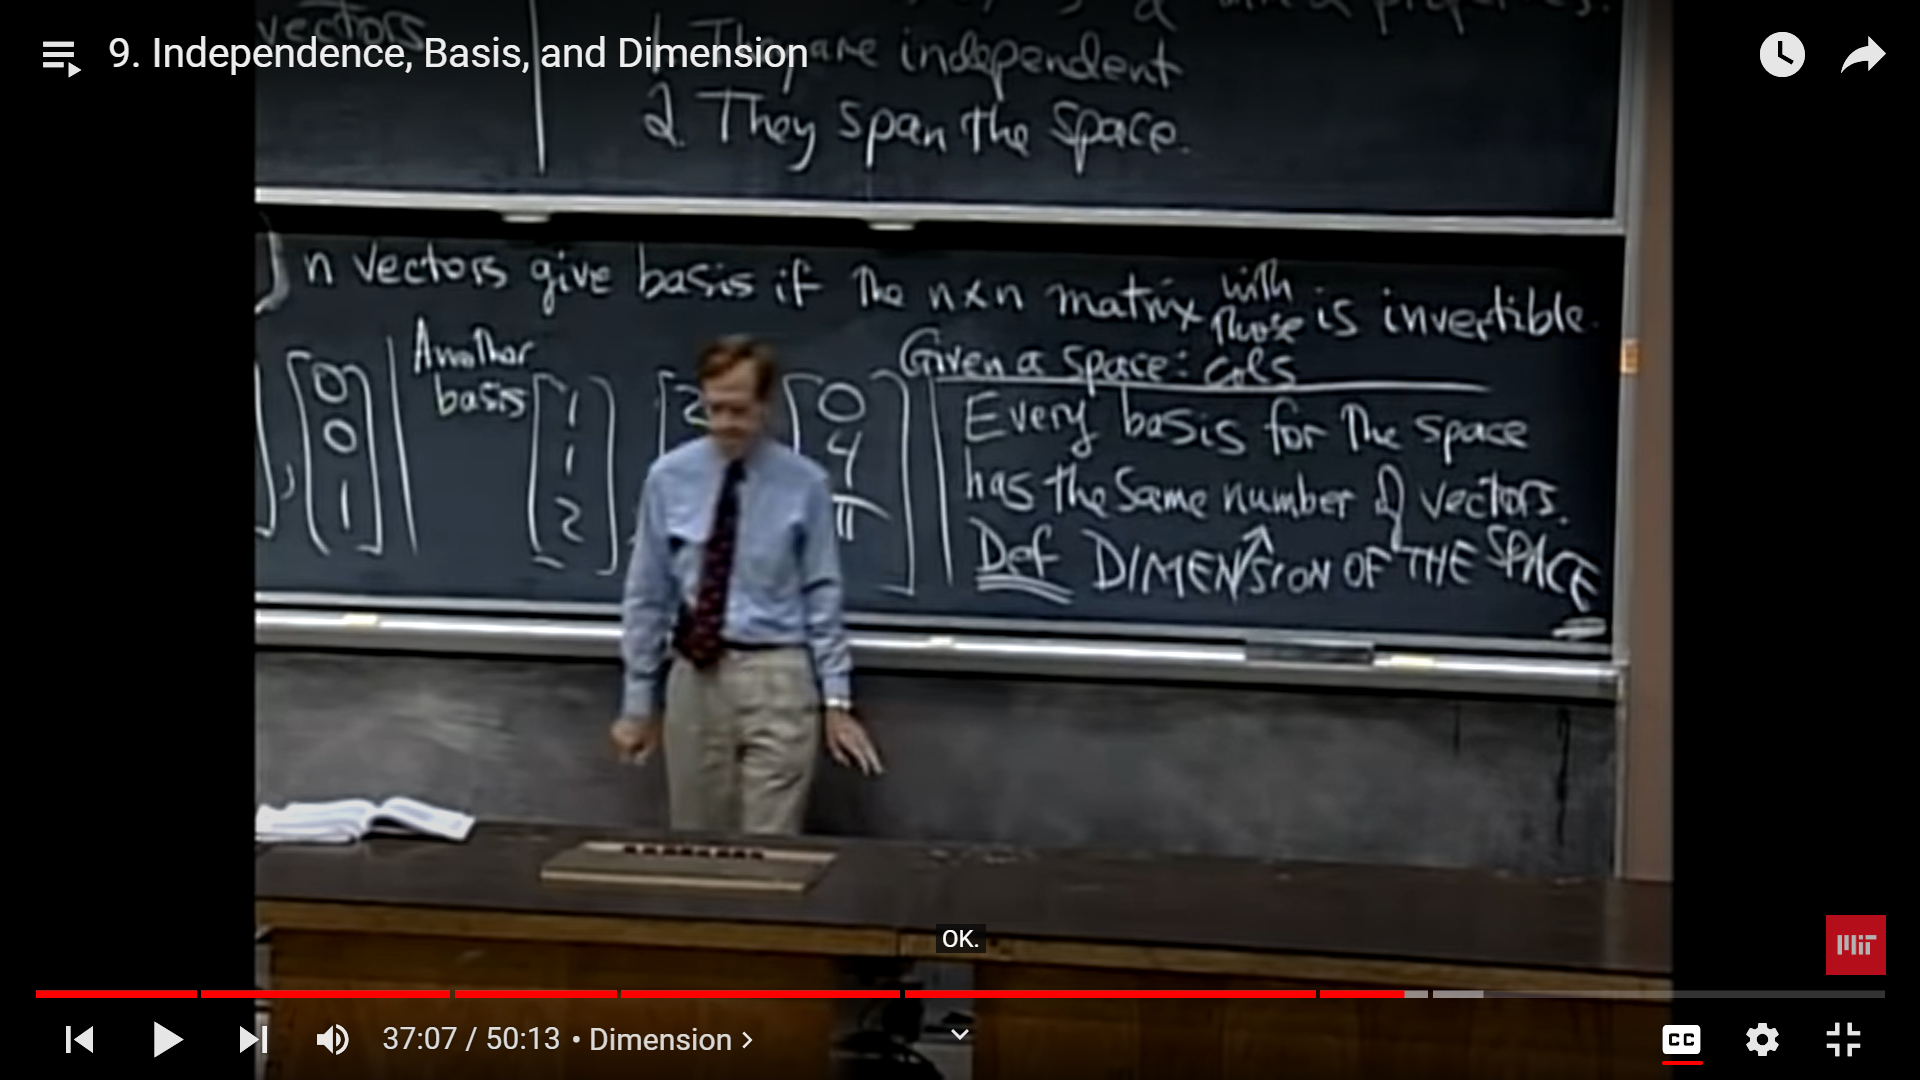 9. Independence, Basis, and Dimension
vectors
1. They are independent
2. They span the space.
n vectors give basis if the n×n matrix with those cols is invertible.
0
0
1
Another
basis
1
1
2
2
0
4
π
Given a space:
Every basis for the space
has the same number of vectors.
Def DIMENSION OF THE SPACE
OK.
MIT
37:07 / 50:13 • Dimension >
CC